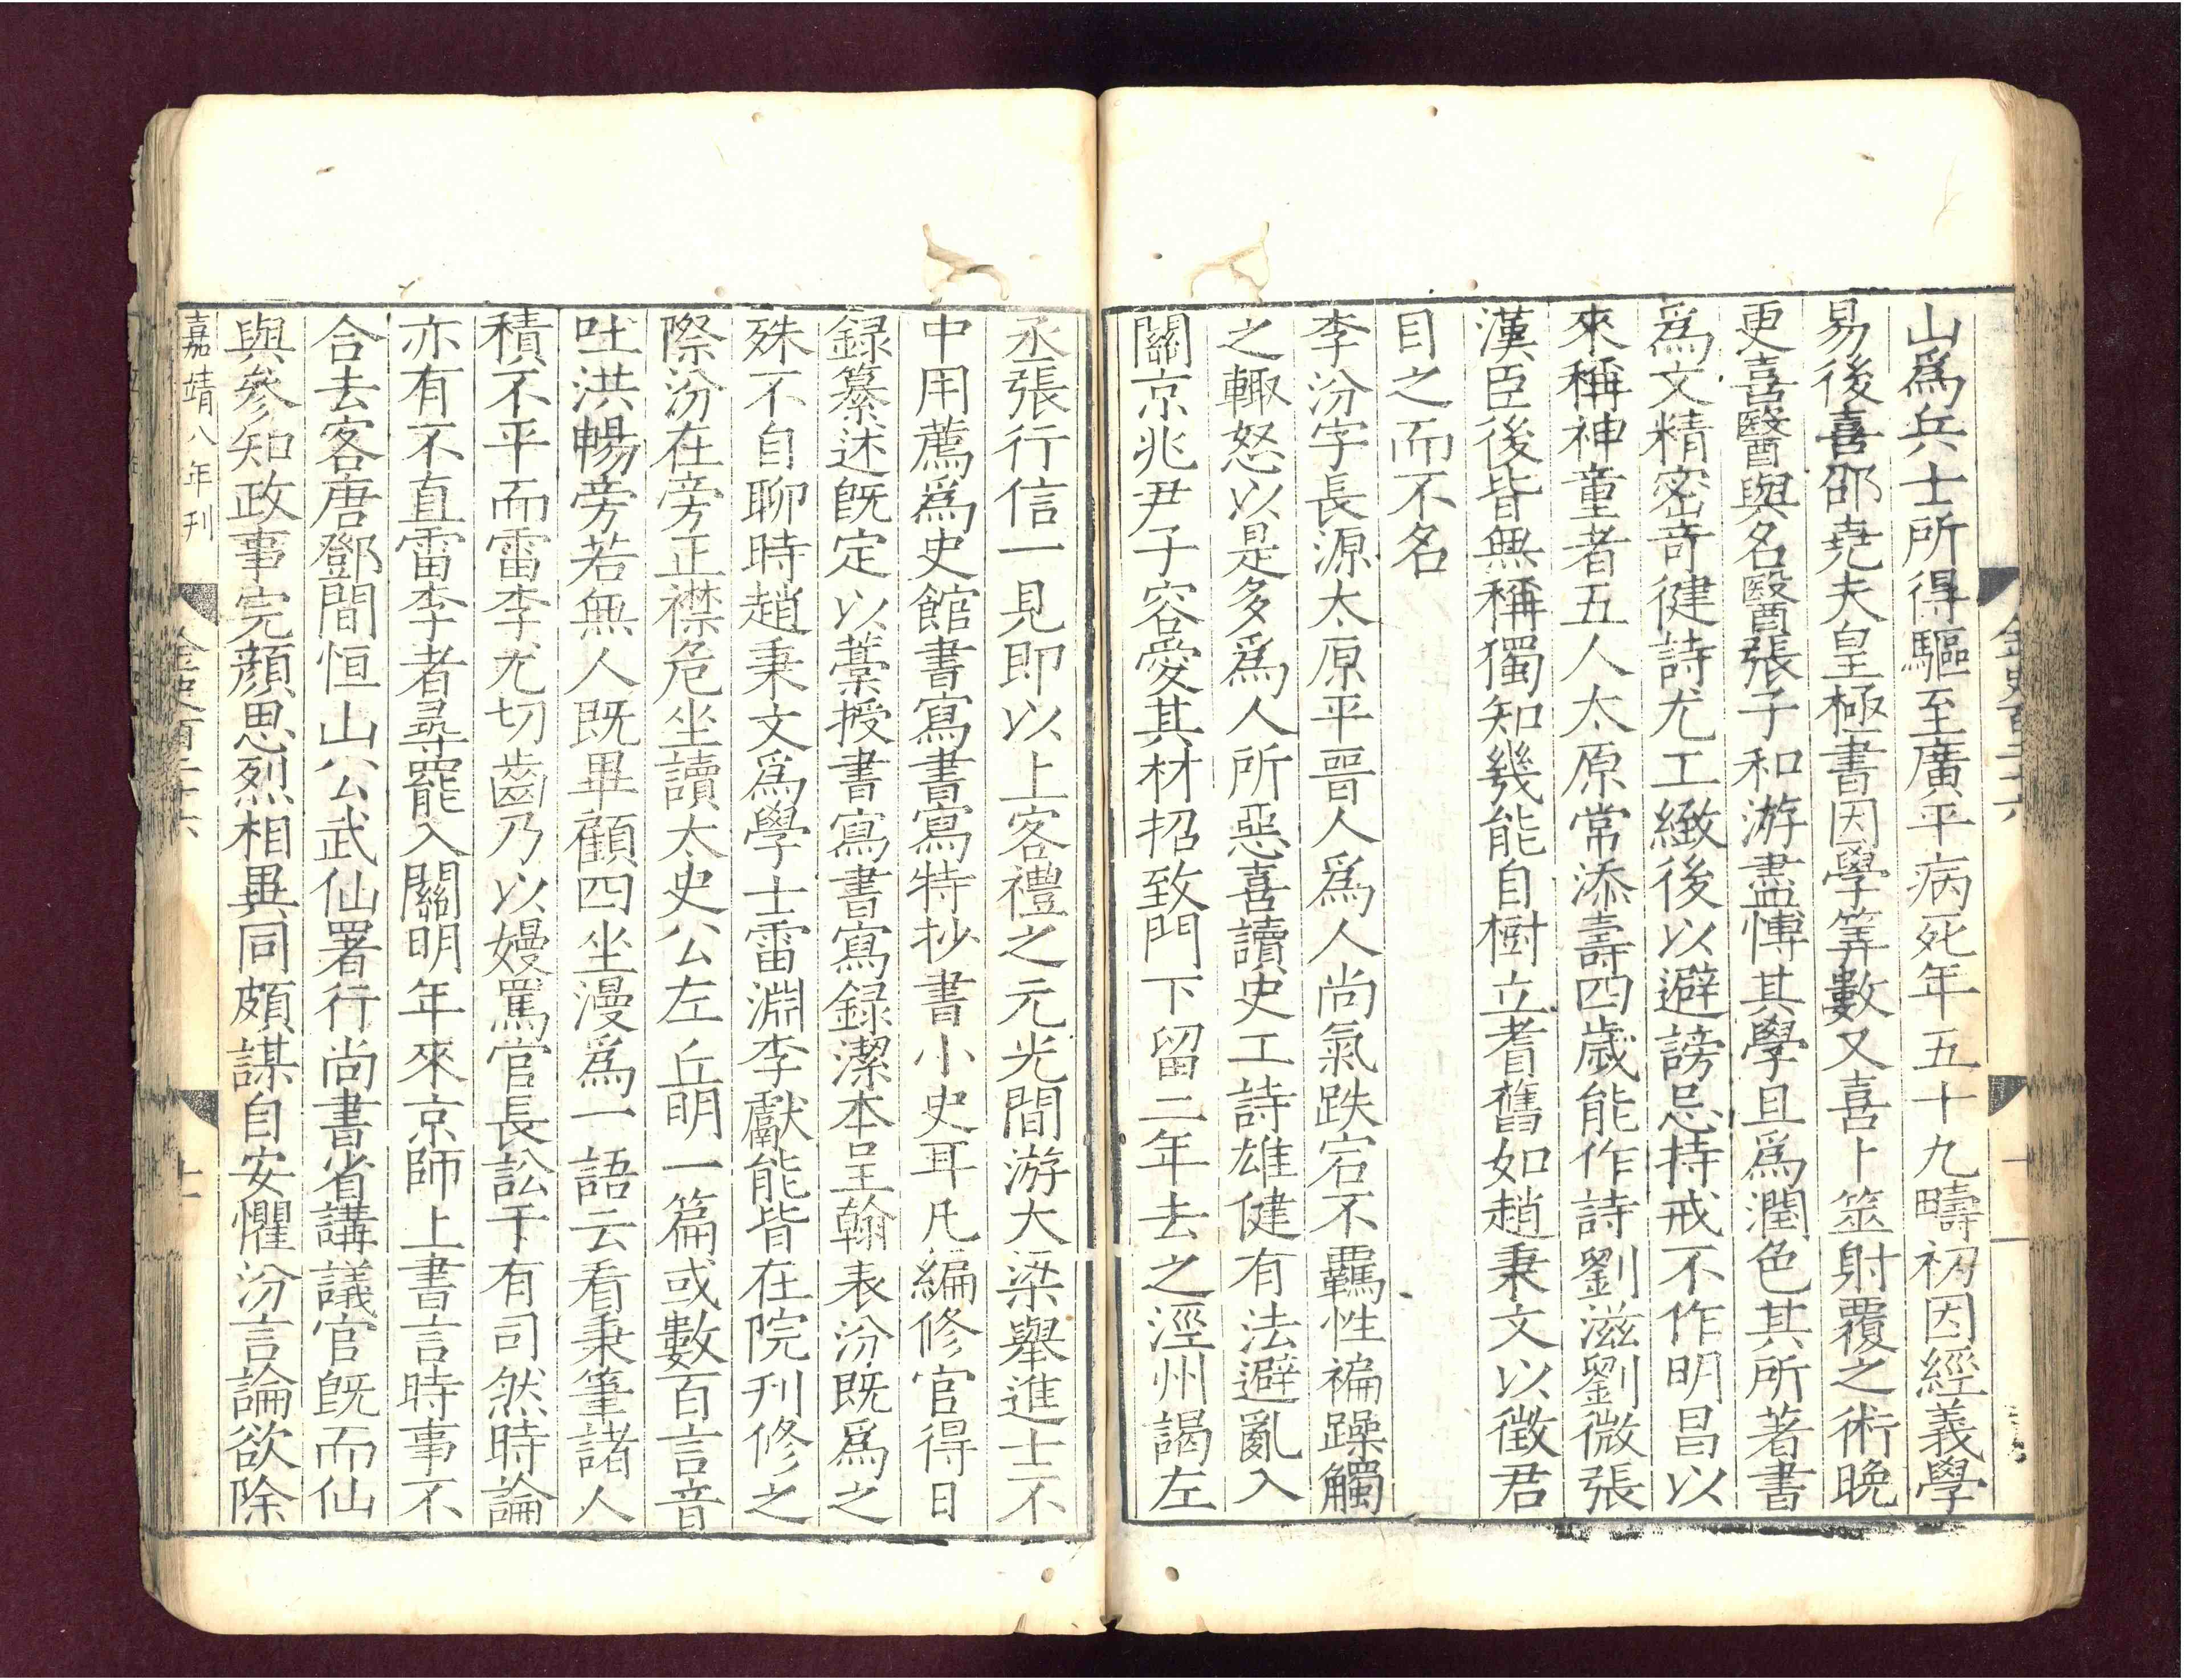 山為兵士所得驅至廣平病死年五十九疇初因經義學
易後喜邵堯夫皇極書因學筭數又喜卜筮射覆之術晚
更喜醫與名醫張子和游盡愽其學且為潤色其所著書
為文精密竒健詩尤工緻後以避謗忌持戒不作明昌以
來稱神童者五人太原常添壽四歲能作詩劉滋劉微張
漢臣後皆無稱獨知幾能自樹立耆舊如趙秉文以徵君
目之而不名
李汾字長源太原平晉人為人尚氣跌宕不羈性褊躁觸
之輙怒以是多為人所惡喜讀史工詩雄健有法避亂入
關京兆尹子容愛其材招致門下留二年去之涇州謁左
丞張行信一見即以上客禮之元光間游大梁舉進士不
中用薦為史館書寫書寫特抄書小史耳凡編修官得日
録纂述旣定以藁授書寫書寫録潔本呈翰表汾既為之
殊不自聊時趙秉文為學士雷淵李獻能皆在院刊修之
際汾在旁正襟危坐讀太史公左丘明一篇或數百言音
吐洪暢旁若無人既畢顧四坐漫為一語云看秉筆諸人
積不平而雷李尤切齒乃以嫚罵官長訟于有司然時論
亦有不直雷李者尋罷入關明年來京師上書言時事不
合去客唐鄧間恒山公武仙署行尚書省講議官旣而仙
與參知政事完顔思烈相異同頗謀自安懼汾言論欲除
嘉靖八年刊
金史百二十六
十一